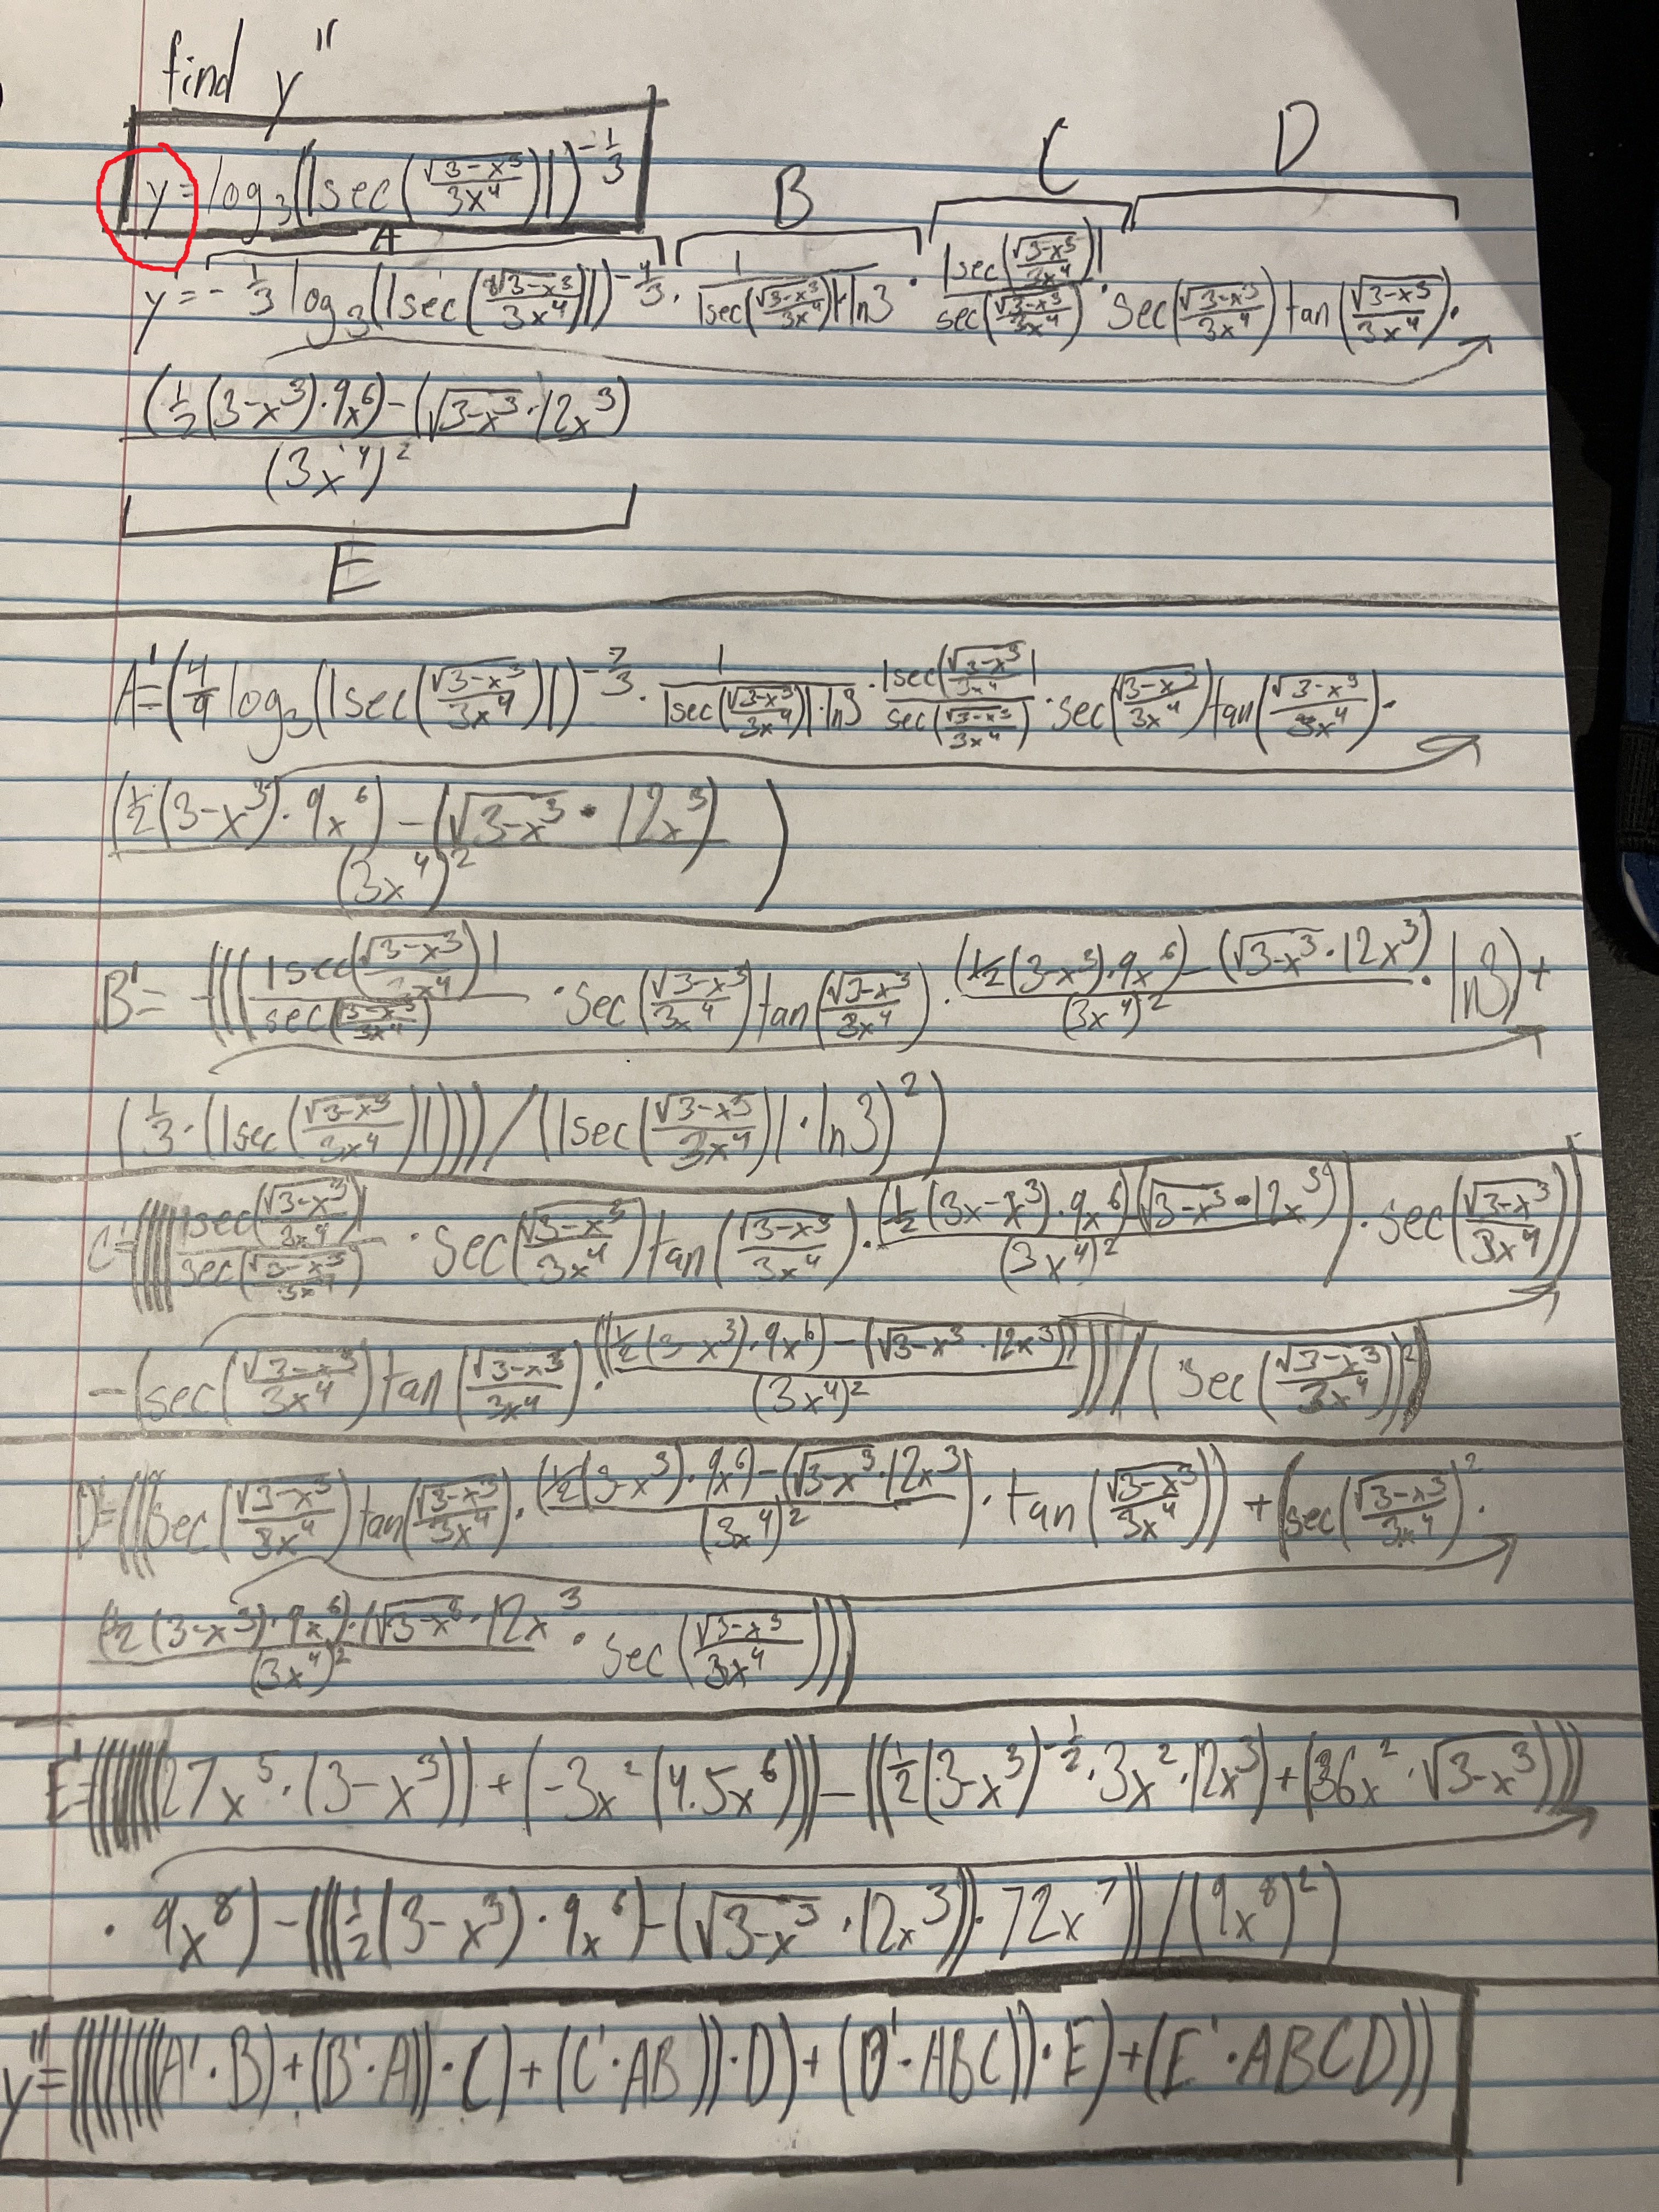 find y"
y = log₃(|sec(√(3-x³)/3x⁴)|)^(-1/3)
A B C D
y' = -1/3 log₃(|sec(√(3-x³)/3x⁴)|)^(-4/3) · 1/(|sec(√(3-x³)/3x⁴)| · ln3) · |sec(√(3-x³)/3x⁴)|/sec(√(3-x³)/3x⁴) · sec(√(3-x³)/3x⁴)tan(√(3-x³)/3x⁴) ·
((1/2(3-x³)·9x⁶)-(√(3-x³)·12x³))/(3x⁴)²
E
A' = (4/9 log₃(|sec(√(3-x³)/3x⁴)|)^(-7/3) · 1/(|sec(√(3-x³)/3x⁴)|·ln3) · |sec(√(3-x³)/3x⁴)|/sec(√(3-x³)/3x⁴) · sec(√(3-x³)/3x⁴)tan(√(3-x³)/3x⁴) ·
((1/2(3-x³)·9x⁶)-(√(3-x³)·12x³))/(3x⁴)²)
B' = -(((|sec(√(3-x³)/3x⁴)|/sec(√(3-x³)/3x⁴) · sec(√(3-x³)/3x⁴)tan(√(3-x³)/3x⁴) · ((1/2(3-x³)·9x⁶)-(√(3-x³)·12x³))/(3x⁴)² · ln3)+
(1/3·(|sec(√(3-x³)/3x⁴)|)))/(|sec(√(3-x³)/3x⁴)|·ln3)²)
C' = (((((|sec(√(3-x³)/3x⁴)|/sec(√(3-x³)/3x⁴) · sec(√(3-x³)/3x⁴)tan(√(3-x³)/3x⁴) · ((1/2(3x-x³)·9x⁶)(√(3-x³)·12x³))/(3x⁴)²) · sec(√(3-x³)/3x⁴))
-(sec(√(3-x³)/3x⁴)tan(√(3-x³)/3x⁴) · ((1/2(3-x³)·9x⁶)-(√(3-x³)·12x³))/(3x⁴)²)))/(sec(√(3-x³)/3x⁴))²))
D' = (((sec(√(3-x³)/3x⁴)tan(√(3-x³)/3x⁴) · ((1/2(3-x³)·9x⁶)-(√(3-x³)·12x³))/(3x⁴)²) · tan(√(3-x³)/3x⁴))+(sec(√(3-x³)/3x⁴)² ·
((1/2(3-x³)·9x⁶)·(√(3-x³)·12x³)/(3x⁴)² · sec(√(3-x³)/3x⁴))))
E' = ((((((27x⁵·(3-x³))+(-3x²(4.5x⁶)))-((1/2(3-x³)^(-1/2)·3x²·12x³)+(36x²·√(3-x³))))
· 9x⁸)-(((1/2(3-x³)·9x⁶)-(√(3-x³)·12x³))·72x⁷))/(9x⁸)²)
y" = (((((((A'·B)+(B'·A))·C)+(C'·AB))·D)+(D'·ABC))·E)+(E'·ABCD))